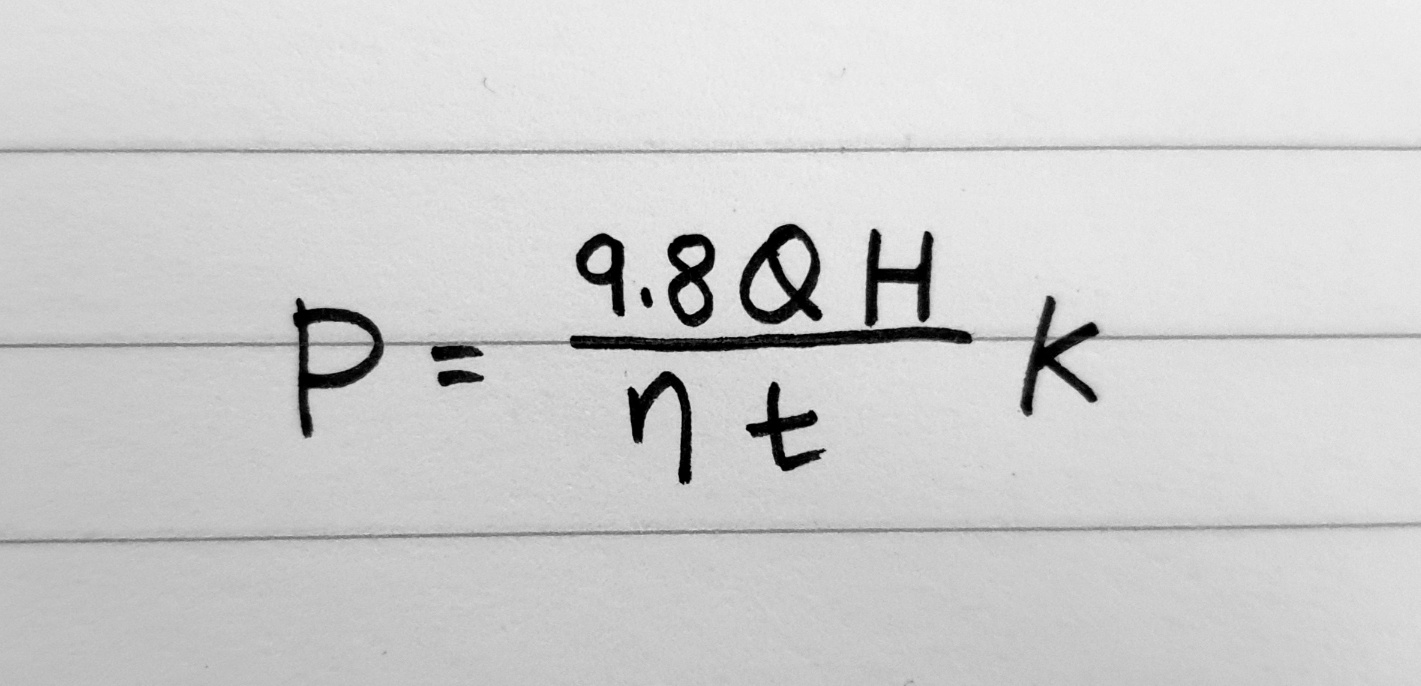 P = \frac{9.8QH}{ηt} K